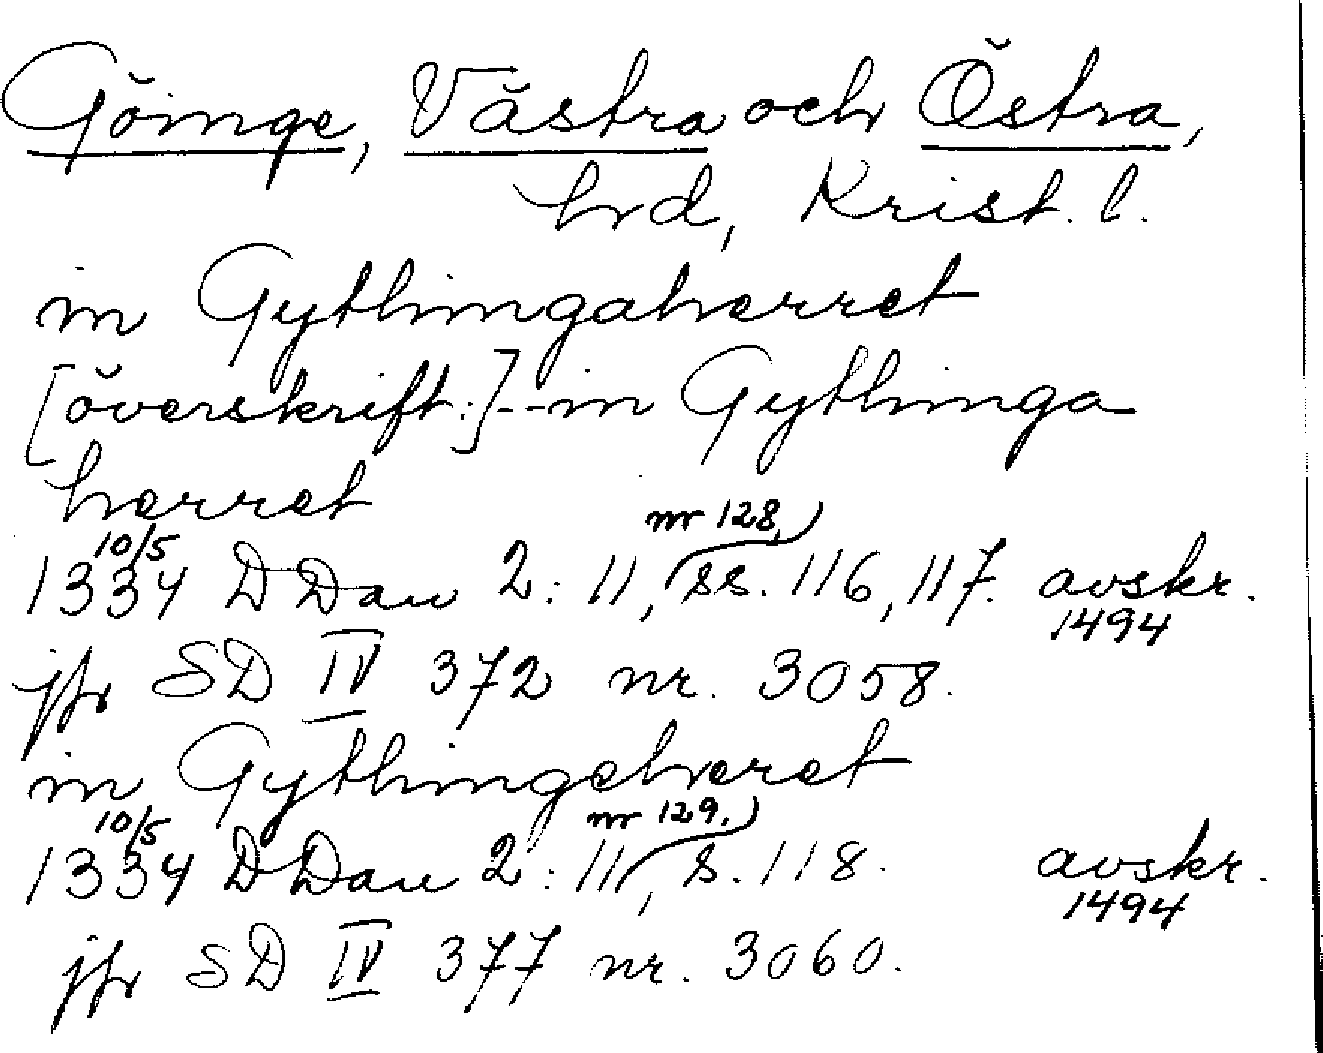 Göinge, Västra och Östra,
hrd, Krist. l.
in Gythingaherret
[överskrift:]--in Gythinga
herret
10/5 nr 128,
1334 DDan 2:11, ss. 116, 117. avskr.
1494
jfr SD IV 372 nr. 3058.
in Gythingeheret
10/5 nr 129.
1334 DDan 2:11, s. 118. avskr.
1494
jfr SD IV 377 nr. 3060.